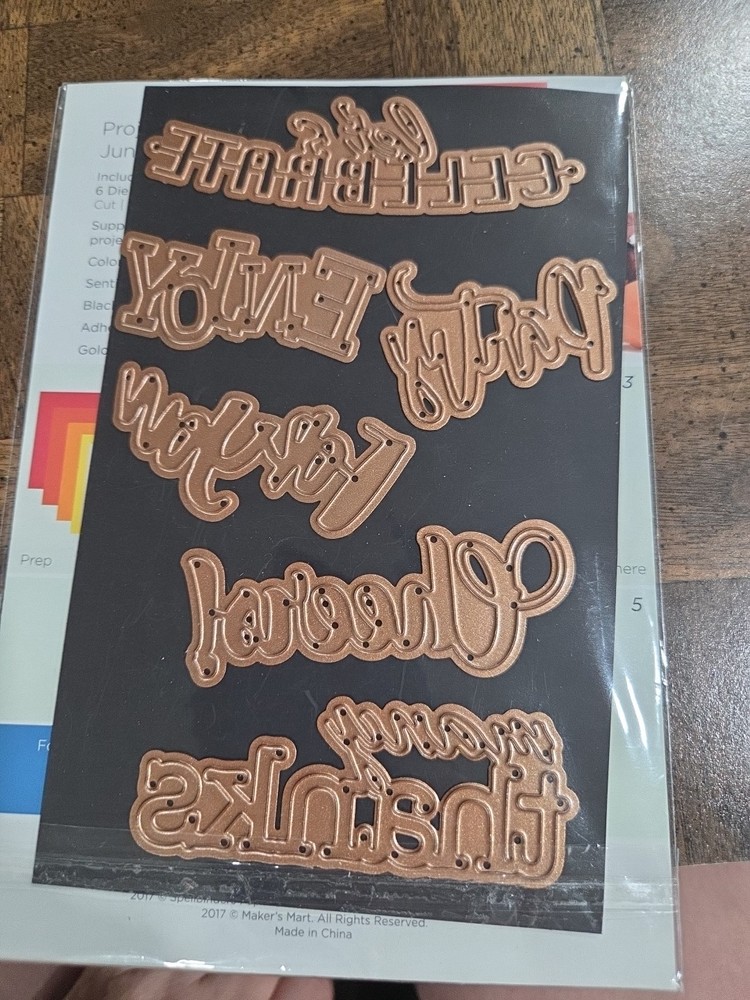 Pro
Jun
Includ
6 Die
Cut |
Supp
proje
Colo
Sent
Blac
Adhe
Gold
let's
CELEBRATE
ENJOY
party
3
for you
Prep
here
5
Cheers!
many
thanks
Fo
2017 ©
2017 © Maker's Mart. All Rights Reserved.
Made in China